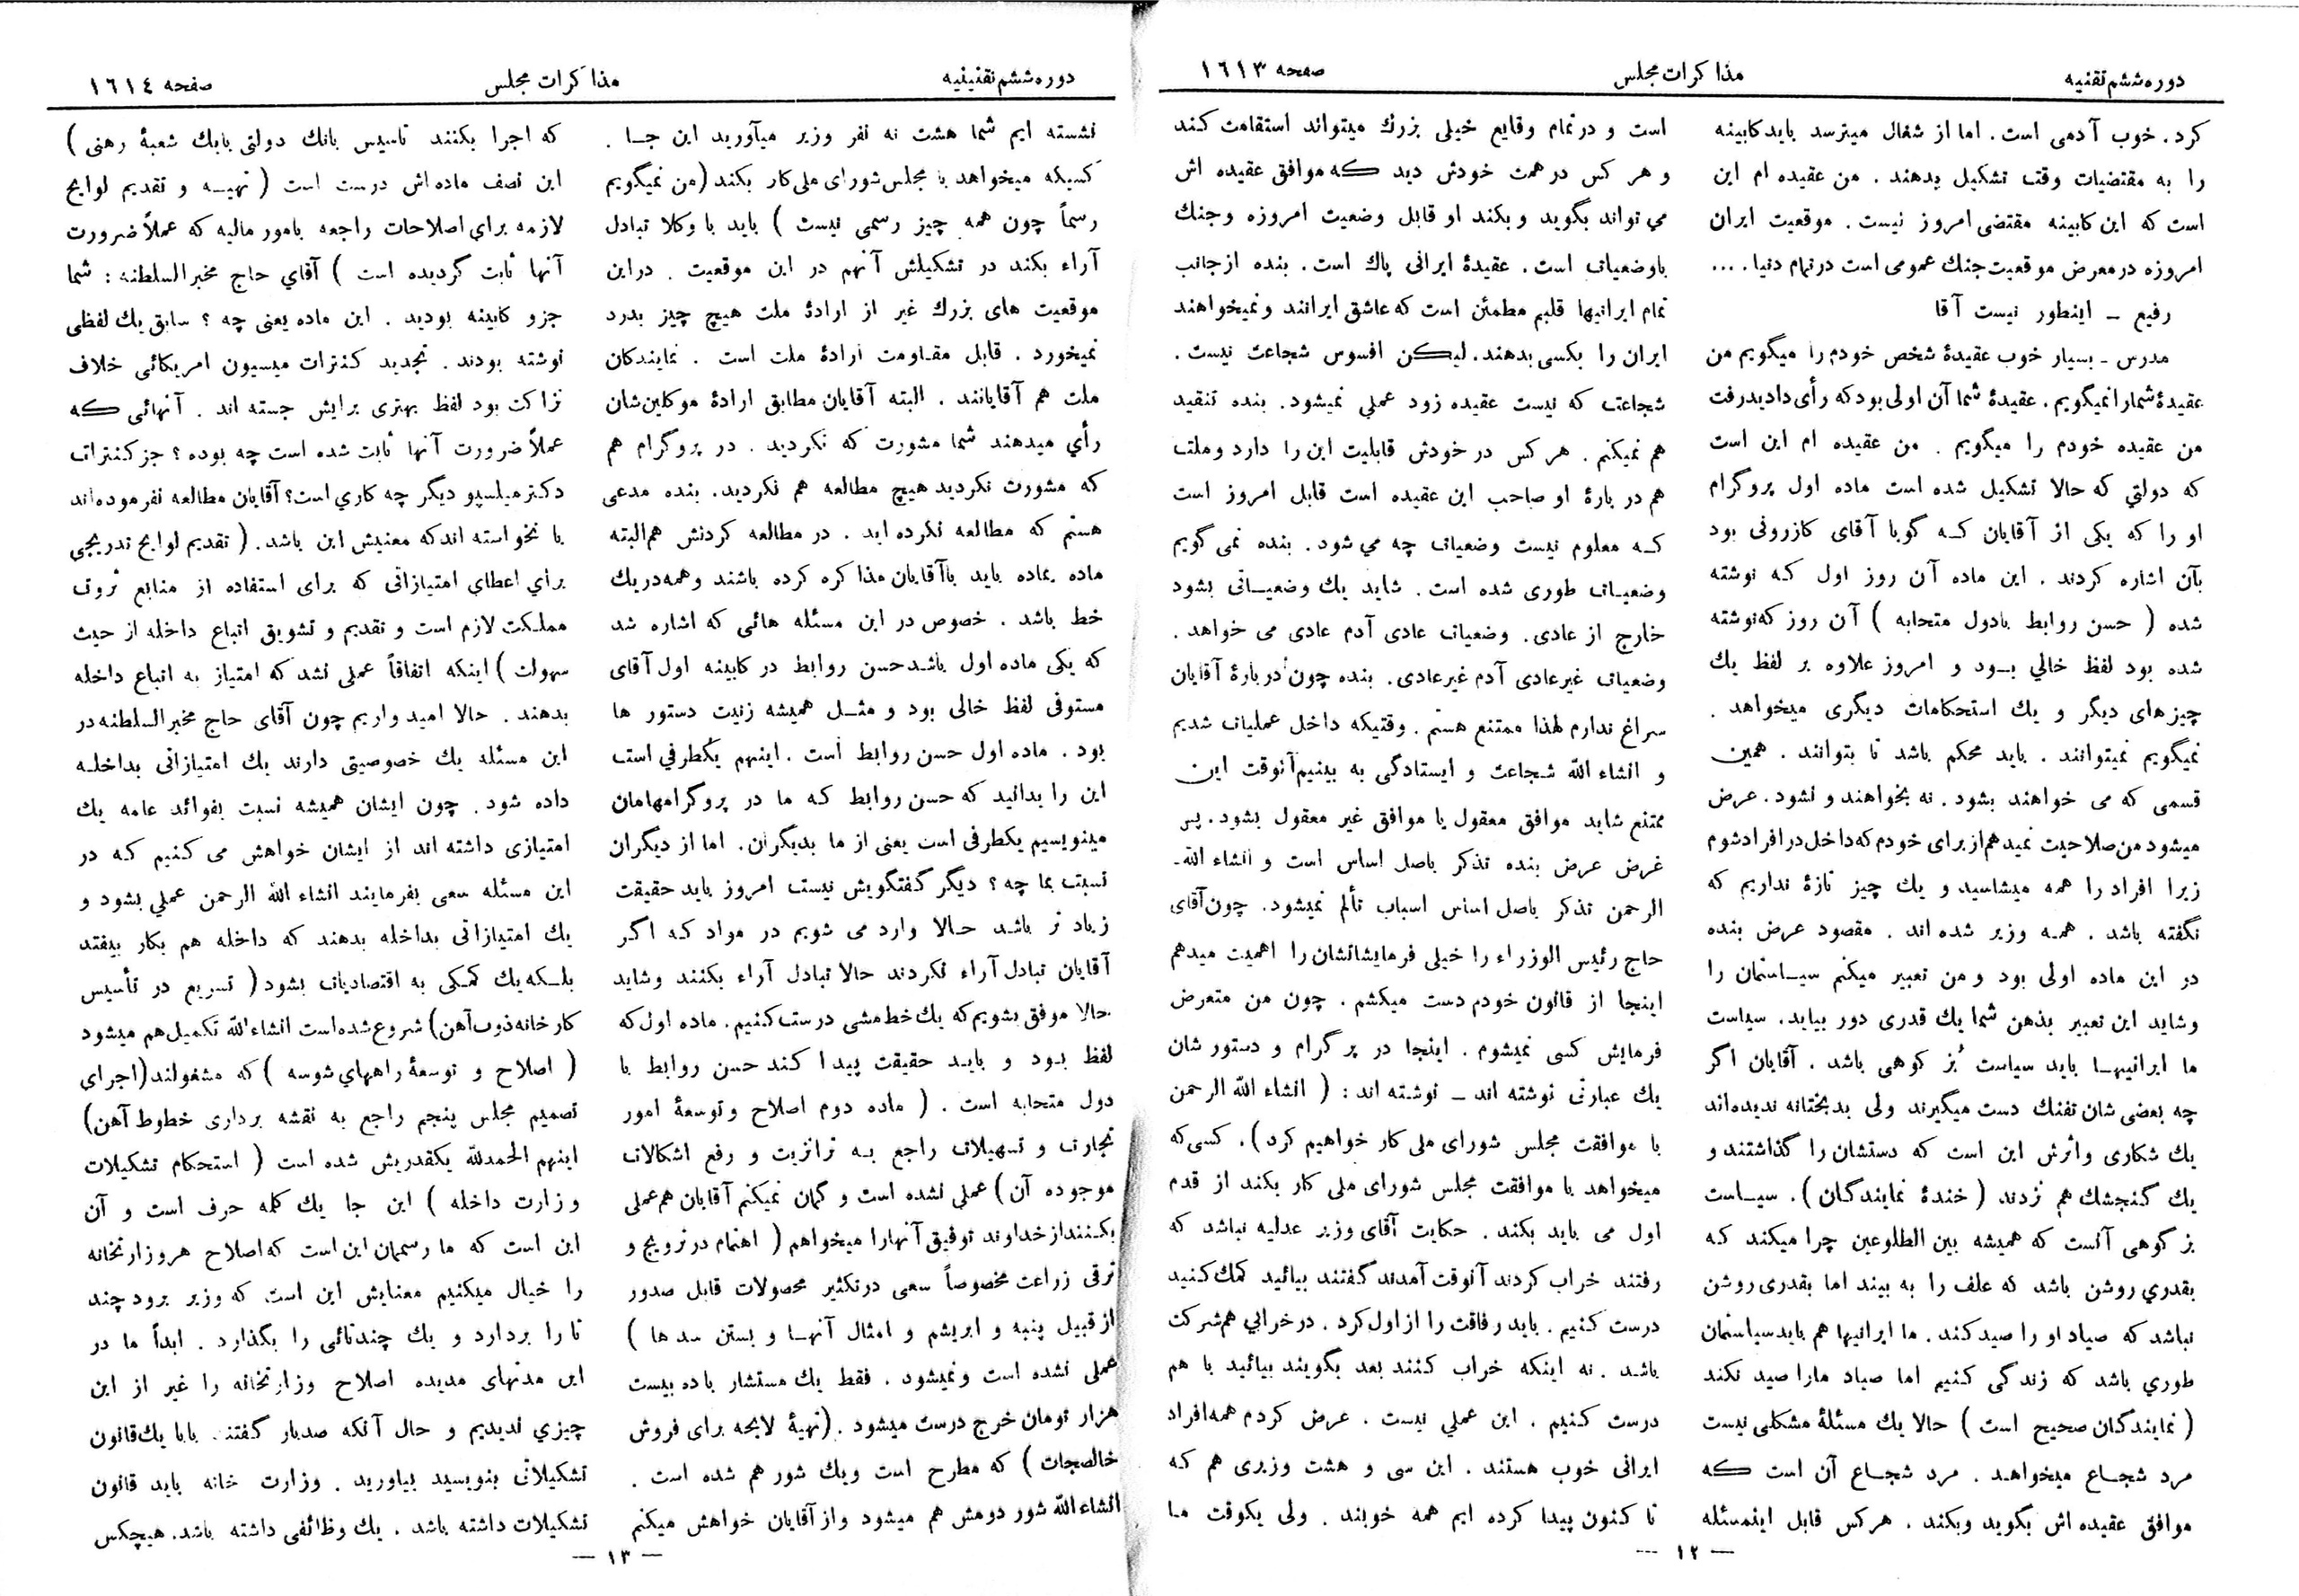 دوره ششم تقنیه
مذاکرات مجلس
صفحه ۱٦۱۳
کرد. خوب آدمی است. اما از شغال میترسد باید کابینه
را به مقتضیات وقت تشکیل بدهند. من عقیده ام این
است که این کابینه مقتضی امروز نیست. موقعیت ایران
امروزه در معرض موقعیت جنك عمومی است در تمام دنیا....
رفیع ــ اینطور نیست آقا
مدرس ـ بسیار خوب عقیدهٔ شخص خودم را میگویم من
عقیدهٔ شما را نمیگویم. عقیدهٔ شما آن اولی بود که رأی دادید رفت
من عقیده خودم را میگویم. من عقیده ام این است
که دولتی که حالا تشکیل شده است ماده اول پروگرام
او را که یکی از آقایان کـه گویا آقای کازرونی بود
بآن اشاره کردند. این ماده آن روز اول کـه نوشته
شده ( حسن روابط بادول متحابه ) آن روز که نوشته
شده بود لفظ خالی بـود و امروز علاوه بر لفظ یك
چیزهای دیگر و یك استحکامات دیگری میخواهد.
نمیگویم نمیتوانند. باید محکم باشد تا بتوانند. همین
قسمی که می خواهند بشود. نه بخواهند و نشود. عرض
میشود من صلاحیت نمیدهم از برای خودم که داخل در افراد شوم
زیرا افراد را همه میشناسید و یك چیز تازهٔ نداریم که
نگفته باشد. همه وزیر شده اند. مقصود عرض بنده
در این ماده اولی بود و من تعبیر میکنم سیـاستمان را
و شاید این تعبیر بذهن شما یك قدری دور بیاید. سیاست
ما ایرانیهـا باید سیاست بُز کوهی باشد. آقایان اگر
چه بعضی شان تفنك دست میگیرند ولی بدبختانه ندیده‌اند
یك شکاری واثرش این است که دستشان را گذاشتند و
یك گنجشك هم نزدند ( خندهٔ نمایندگان ). سیـاست
بز کوهی آنست که همیشه بین الطلوعین چرا میکند که
بقدری روشن باشد که علف را به بیند اما بقدری روشن
نباشد که صیاد او را صید کند. ما ایرانیها هم باید سیاستمان
طوری باشد که زندگی کنیم اما صیاد مارا صید نکند
( نمایندگان صحیح است ) حالا یك مسئلهٔ مشکلی نیست
مرد شجـاع میخواهـد. مرد شجـاع آن است که
موافق عقیده اش بگوید وبکند. هرکس قابل اینمسئله
است و در تمام وقایع خیلی بزرك میتواند استقامت کند
و هر کس در همت خودش دید که موافق عقیده اش
می تواند بگوید و بکند او قابل وضعیت امروزه وجنك
باوضعیات است. عقیدهٔ ایرانی پاك است. بنده از جانب
تمام ایرانیها قلبم مطمئن است که عاشق ایرانند و نمیخواهند
ایران را بکسی بدهند. لیکن افسوس شجاعت نیست.
شجاعت که نیست عقیده زود عملی نمیشود. بنده تنقید
هم نمیکنم. هر کس در خودش قابلیت این را دارد وملت
هم در بارهٔ او صاحب این عقیده است قابل امروز است
کـه معلوم نیست وضعیات چه می شود. بنده نمی گویم
وضعیـات طوری شده است. شاید یك وضعیـاتی بشود
خارج از عادی. وضعیات عادی آدم عادی می خواهد.
وضعیات غیرعادی آدم غیرعادی. بنده چون دربارهٔ آقایان
سراغ ندارم لهذا ممتنع هستم. وقتیکه داخل عملیات شدیم
و انشاء الله شجاعت و ایستادگی به بینیم آنوقت این
ممتنع شاید موافق معقول یا موافق غیر معقول بشود. پس
غرض عرض بنده تذکر باصل اساس است و انشاء الله ـ
الرحمن تذکر باصل اساس اسباب تألم نمیشود. چون آقای
حاج رئیس الوزراء را خیلی فرمایشاتشان را اهمیت میدهم
اینجا از قانون خودم دست میکشم. چون من متعرض
فرمایش کسی نمیشوم. اینجا در پرگرام و دستور شان
یك عبارتی نوشته اند ــ نوشته اند: ( انشاء الله الرحمن
با موافقت مجلس شورای ملی کار خواهیم کرد). کسی که
میخواهد با موافقت مجلس شورای ملی کار بکند از قدم
اول می باید بکند. حکایت آقای وزیر عدلیه نباشد که
رفتند خراب کردند آنوقت آمدند گفتند بیائید کمك کنید
درست کنیم. باید رفاقت را از اول کرد. در خرابی هم شرکت
باشد. نه اینکه خراب کنند بعد بگویند بیائید با هم
درست کنیم. این عملی نیست. عرض کردم همه افراد
ایرانی خوب هستند. این سی و هشت وزیری هم که
تا کنون پیدا کرده ایم همه خوبند. ولی یکوقت ما
— ۱۲ —
دوره ششم تقنینیه
مذاکرات مجلس
صفحه ۱٦۱٤
نشسته ایم شما هشت نه نفر وزیر میآورید این جـا.
کسیکه میخواهد با مجلس شورای ملی کار بکند (من نمیگویم
رسماً چون همه چیز رسمی نیست ) باید با وکلا تبادل
آراء بکند در تشکیلش آنهم در این موقعیت. دراین
موقعیت های بزرك غیر از ارادهٔ ملت هیچ چیز بدرد
نمیخورد. قابل مقـاومت ارادهٔ ملت است. نمایندگان
ملت هم آقایانند. البته آقایان مطابق ارادهٔ موکلین‌شان
رأی میدهند شما مشورت که نکردید. در پروگرام هم
که مشورت نکردید هیچ مطالعه هم نکردید. بنده مدعی
هستم که مطالعه نکرده اید. در مطالعه کردنش هم البته
ماده بماده باید باآقایان مذاکره کرده باشند وهمه دریك
خط باشد. خصوص در این مسئله هائی که اشاره شد
که یکی ماده اول باشد حسن روابط در کابینه اول آقای
مستوفی لفظ خالی بود و مثـل همیشه زینت دستور ها
بود. ماده اول حسن روابط است. اینهم یکطرفی است
این را بدانید که حسن روابط کـه ما در پروگرامهامان
مینویسیم یکطرفی است یعنی از ما بدیگران. اما از دیگران
نسبت بما چه؟ دیگر گفتگویش نیست امروز باید حقیقت
زیاد تر باشـد حـالا وارد می شویم در مواد کـه اگـر
آقایان تبادل آراء نکردند حالا تبادل آراء بکنند وشاید
حالا موفق بشویم که یك خط مشی درست کنیم. ماده اول که
لفظ بـود و بایـد حقیقت پیدا کند حسن روابط با
دول متحابه است. ( ماده دوم اصلاح وتوسعهٔ امور
تجارت و تسهیلات راجع بـه ترانزیت و رفع اشکالات
موجوده آن ) عملی نشده است و گمان نمیکنم آقایان هم عملی
بکنند از خداوند توفیق آنهارا میخواهم ( اهتمام در ترویج و
ترقی زراعت مخصوصاً سعی در تکثیر محصولات قابل صدور
از قبیل پنبه و ابریشم و امثال آنهـا و بستن سد ها )
عملی نشده است ونمیشود. فقط یك مستشار با ده بیست
هزار تومان خرج درست میشود. (تهیهٔ لایحه برای فروش
خالصجات ) که مطرح است ویك شور هم شده است.
انشاء الله شور دومش هم میشود واز آقایان خواهش میکنم
که اجرا بکنند تاسیس بانك دولتی یابك شعبهٔ رهنی )
این نصف ماده‌اش درست است ( تهیـه و تقدیم لوایح
لازمه برای اصلاحات راجعه بامور مالیه که عملاً ضرورت
آنها ثابت گردیده است ) آقای حاج مخبرالسلطنه: شما
جزو کابینه بودید. این ماده یعنی چه؟ سابق یك لفظی
نوشته بودند. تجدید کنترات میسیون امریکائی خلاف
نزاکت بود لفظ بهتری برایش جسته اند. آنهائی که
عملاً ضرورت آنها ثابت شده است چه بوده؟ جز کنترات
دکتر میلسپو دیگر چه کاری است؟ آقایان مطالعه نفرموده‌اند
یا نخواسته اند که معنیش این باشد. ( تقدیم لوایح تدریجی
برای اعطای امتیازاتی که برای استفاده از منابع ثروت
مملکت لازم است و تقدیم و تشویق اتباع داخله از حیث
سهولت ) اینکه اتفاقاً عملی نشد که امتیاز به اتباع داخله
بدهند. حالا امید واریم چون آقای حاج مخبرالسلطنه در
این مسئله یك خصوصیتی دارند یك امتیازاتی بداخلـه
داده شود. چون ایشان همیشه نسبت بفوائد عامه یك
امتیازی داشته اند از ایشان خواهش می کنیم کـه در
این مسئله سعی بفرمایند انشاء الله الرحمن عملی بشود و
یك امتیازاتی بداخله بدهند که داخله هم بکار بیفتد
بلـکه یك کمکی به اقتصادیات بشود ( تسریع در تأسیس
کارخانه ذوب آهن ) شروع شده است انشاءالله تکمیل هم میشود
( اصلاح و توسعهٔ راههای شوسه ) که مشغولند (اجرای
تصمیم مجلس پنجم راجع به نقشه برداری خطوط آهن)
اینهم الحمدلله یکقدریش شده است ( استحکام تشکیلات
وزارت داخله ) این جا یك کلمه حرف است و آن
این است که ما رسممان این است که اصلاح هر وزارتخانه
را خیال میکنیم معنایش این است که وزیر برود چند
تا را بردارد و یك چندتائی را بگذارد. ابداً ما در
این مدتهای مدیده اصلاح وزارتخانه را غیر از این
چیزی ندیدیم و حال آنکه صدبار گفتند بابا یك قانون
تشکیلاتی بنویسید بیاورید. وزارت خانه باید قانون
تشکیلات داشته باشد. یك وظائفی داشته باشد. هیچکس
— ۱۳ —